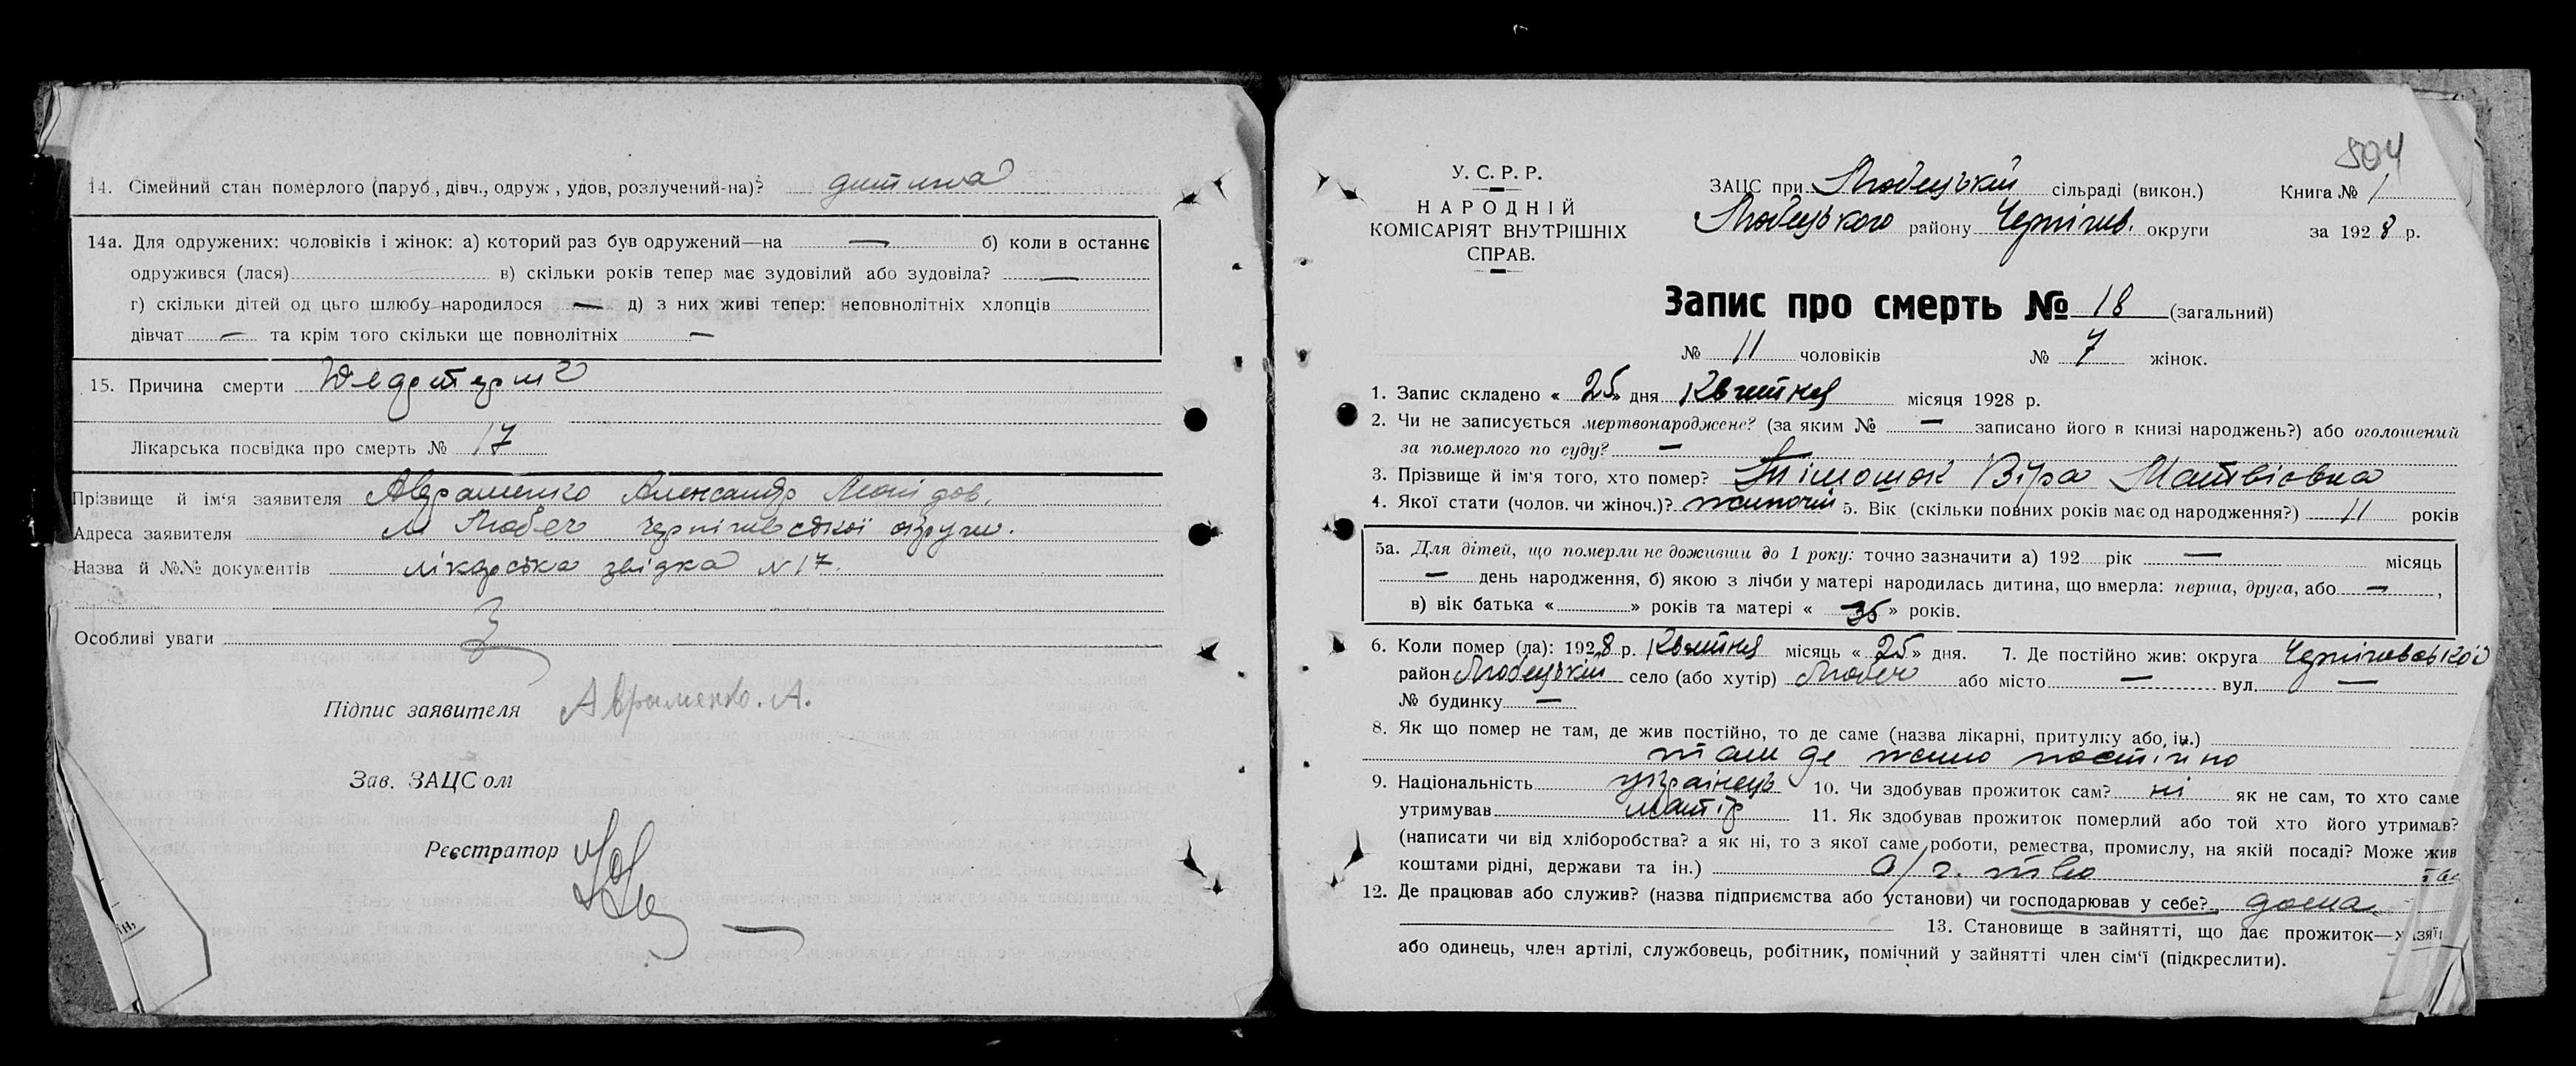 14. Сімейний стан померлого (паруб., дівч., одруж., удов, розлучений-на)? дитина
14а. Для одружених: чоловіків і жінок: а) который раз був одружений—на — б) коли в останнє
одружився (лася) в) скільки років тепер має зудовілий або зудовіла? —
г) скільки дітей од цьго шлюбу народилося — д) з них живі тепер: неповнолітніх хлопців
дівчат — та крім того скільки ще повнолітніх —
15. Причина смерти
Лікарська посвідка про смерть № 17
Прізвище й ім'я заявителя Авраменко Александр Леонідов.
Адреса заявителя м Любеч Чернігівської округи.
Назва й №№ документів лікарська звідка N 17.
Особливі уваги
Підпис заявителя Авраменко. А.
Зав. ЗАЦСом
Реєстратор
504
У. С. Р. Р.
НАРОДНІЙ
КОМІСАРІЯТ ВНУТРІШНІХ
СПРАВ.
ЗАЦС при Любецькій сільраді (викон.) Книга № 1
Любецького району Чернігів. округи за 1928 р.
Запис про смерть № 18 (загальний)
№ 11 чоловіків № 7 жінок.
1. Запис складено « 25 » дня Квітня місяця 1928 р.
2. Чи не записується мертвонароджене? (за яким № — записано його в книзі народжень?) або оголошений
за померлого по суду? —
3. Прізвище й ім'я того, хто помер? Тімошок Віра Матвіовна
4. Якої стати (чолов. чи жіноч.)? жиночий 5. Вік (скільки повних років має од народження?) 11 років
5а. Для дітей, що померли не доживши до 1 року: точно зазначити а) 192 рік — місяць
— день народження, б) якою з лічби у матері народилась дитина, що вмерла: перша, друга, або — ,
в) вік батька « » років та матері « 35 » років.
6. Коли помер (ла): 1928 р. Квітня місяць « 25 » дня. 7. Де постійно жив: округа Черніговської
район Любецький село (або хутір) Любеч або місто — вул. —
№ будинку —
8. Як що помер не там, де жив постійно, то де саме (назва лікарні, притулку або, ін.)
там де жило постійно
9. Національність українець 10. Чи здобував прожиток сам? ні як не сам, то хто саме
утримував матір 11. Як здобував прожиток померлий або той хто його утримав?
(написати чи від хліборобства? а як ні, то з якої саме роботи, ремества, промислу, на якій посаді? Може жив
коштами рідні, держави та ін.)
12. Де працював або служив? (назва підприємства або установи) чи господарював у себе? дома
13. Становище в зайнятті, що дає прожиток—хазяїн
або одинець, член артілі, службовець, робітник, помічний у зайнятті член сім'ї (підкреслити).